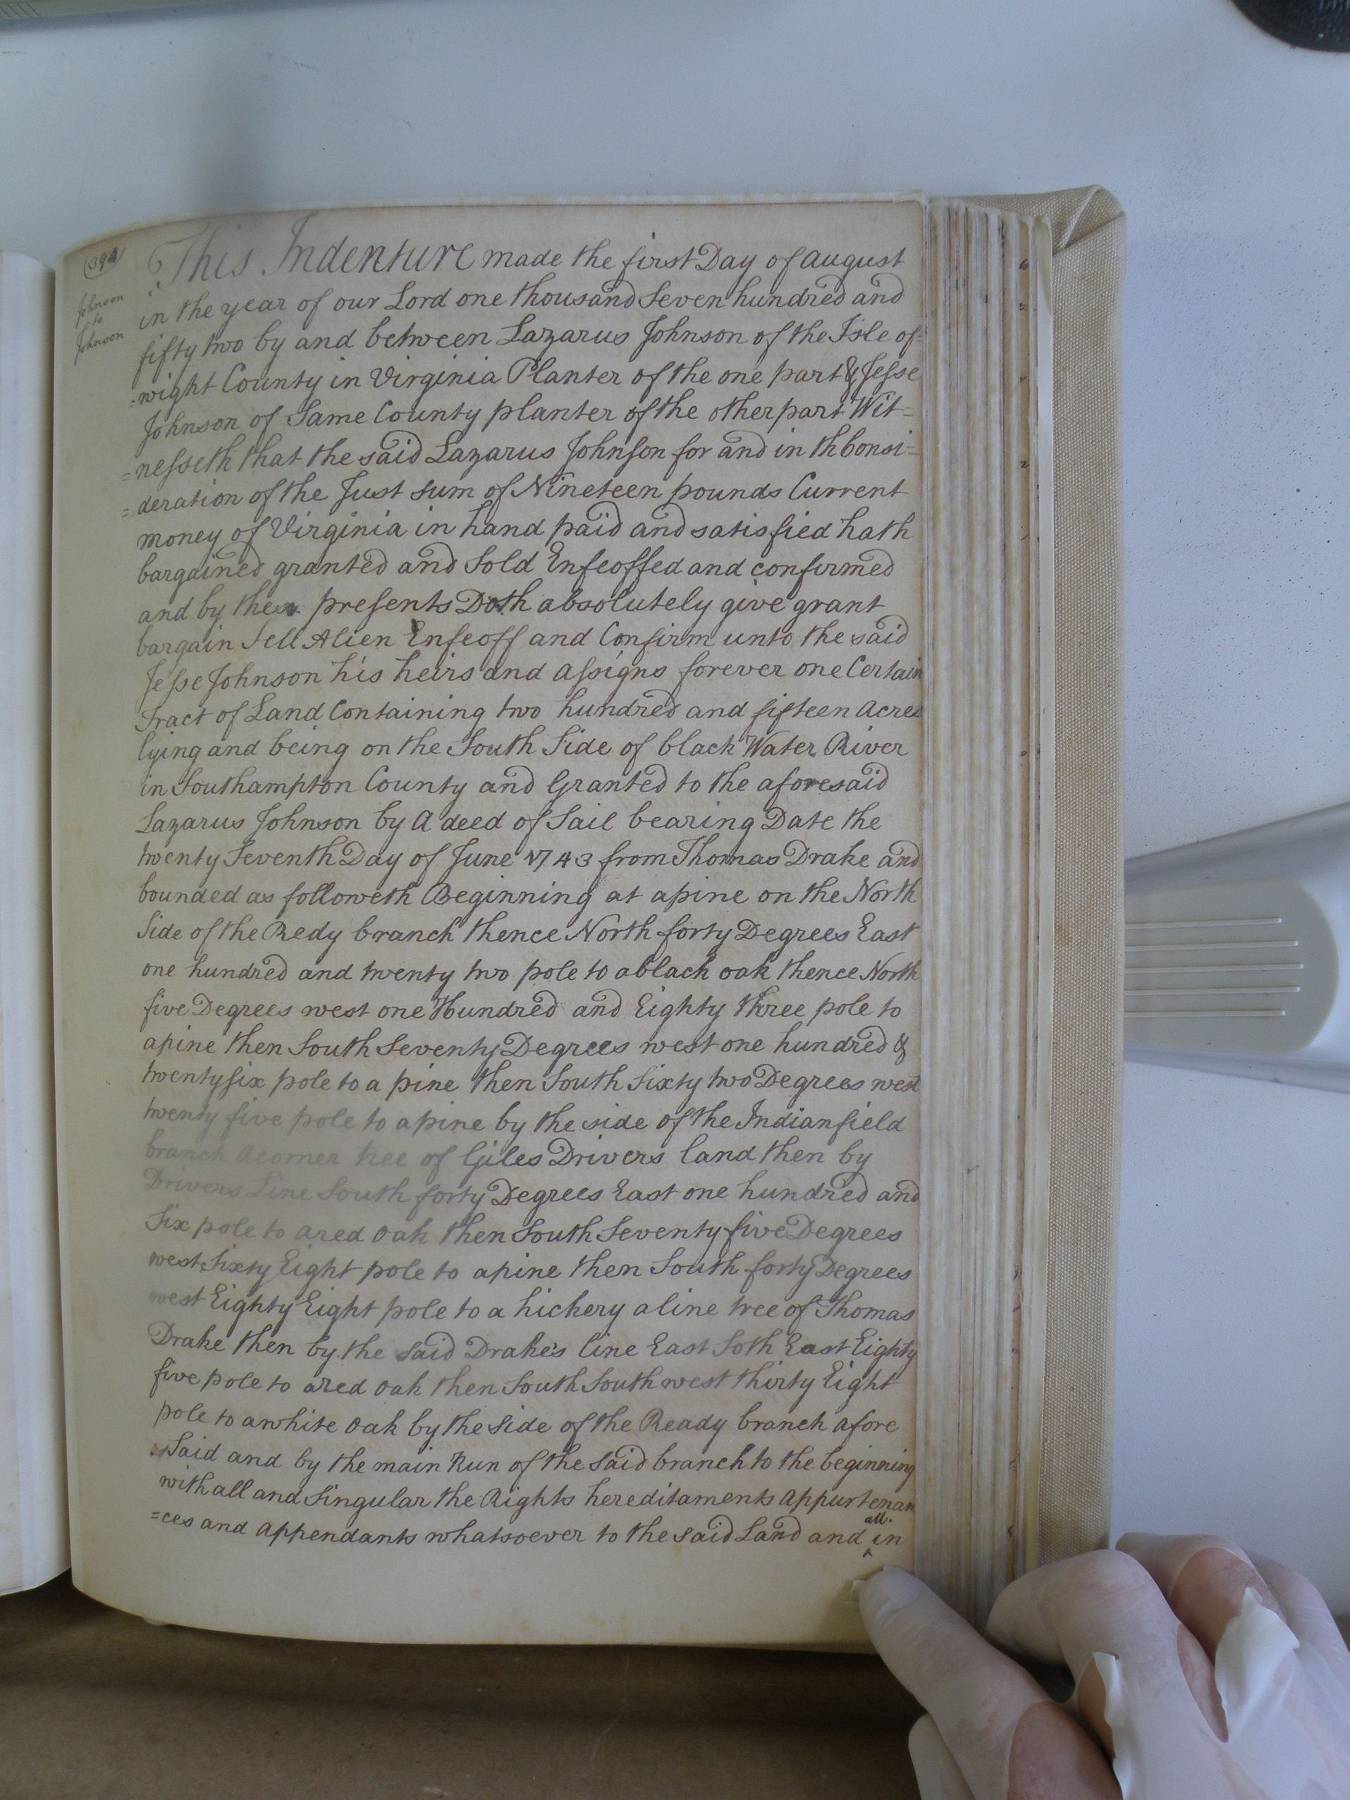 (394)
Johnson
to
Johnson
This Indenture made the first Day of august
in the year of our Lord one thousand Seven hundred and
fifty two by and between Lazarus Johnson of the Isle of
=wight County in Virginia Planter of the one part & Jesse
Johnson of Same County planter of the other part Wit=
=nesseth that the said Lazarus Johnson for and in th Consi=
=deration of the Just sum of Nineteen pounds Current
money of Virginia in hand paid and satisfied hath
bargained granted and Sold Enfeoffed and confirmed
and by these presents Doth absolutely give grant
bargain Sell Alien Enfeoff and Confirm unto the said
Jesse Johnson his heirs and assigns forever one Certain
Tract of Land Containing two hundred and fifteen acres
lying and being on the South Side of black Water River
in Southampton County and Granted to the aforesaid
Lazarus Johnson by A deed of Sail bearing Date the
twenty Seventh Day of June 1743 from Thomas Drake and
bounded as followeth Beginning at a pine on the North
Side of the Redy branch thence North forty Degrees East
one hundred and twenty two pole to a black oak thence North
five Degrees west one Hundred and Eighty three pole to
a pine then South Seventy Degrees west one hundred &
twenty six pole to a pine then South Sixty two Degrees west
twenty five pole to a pine by the side of the Indianfield
branch a corner tree of Giles Drivers land then by
Drivers Line South forty Degrees East one hundred and
Six pole to a red oak then South Seventy five Degrees
west Sixty Eight pole to a pine then South forty Degrees
west Eighty Eight pole to a hickery a line tree of Thomas
Drake then by the said Drake's line East Soth East Eighty
five pole to a red oak then South South west thirty Eight
pole to a white oak by the Side of the Ready branch afore
=Said and by the main Run of the said branch to the beginning
with all and Singular the Rights hereditaments appurtenan
=ces and appendants whatsoever to the said Land and ^ all in